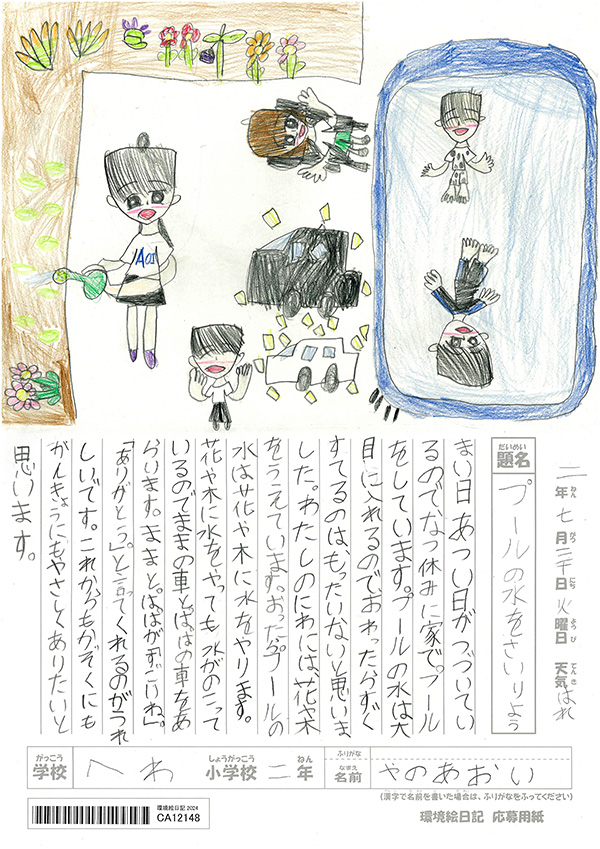 Aoi
二年ねん七月がつ三十日にち火曜日ようび 天気てんきはれ
だいめい
題名 プールの水をさいりよう
まい日あつい日がつづいてい
るのでなつ休みに家で、プール
をしています。プールの水は大
目に入れるのでおわったらすぐ
すてるのは、もったいないと思いま
した。わたしのにわには、花や木
をうえています。おわったらプールの
水は花や木に水をやります。
花や木に水をやっても水がのこって
いるのでままの車とぱぱの車をあ
らいます。ままと、ぱぱが「すごいね」。
「ありがとう」。と言ってくれるのがうれ
しいです。これからもかぞくにも
かんきょうにもやさしくありたいと
思います。
がっこう しょうがっこう ねん ふりがな
学校 へわ 小学校 二 年 なまえ 名前 やのあおい
(漢字で名前を書いた場合は、ふりがなをふってください)
環境絵日記 2024
CA12148
環境絵日記 応募用紙